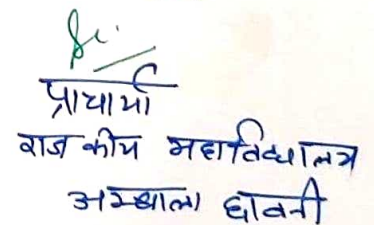 प्राचार्या
राजकीय महाविद्यालय
अम्बाला छावनी